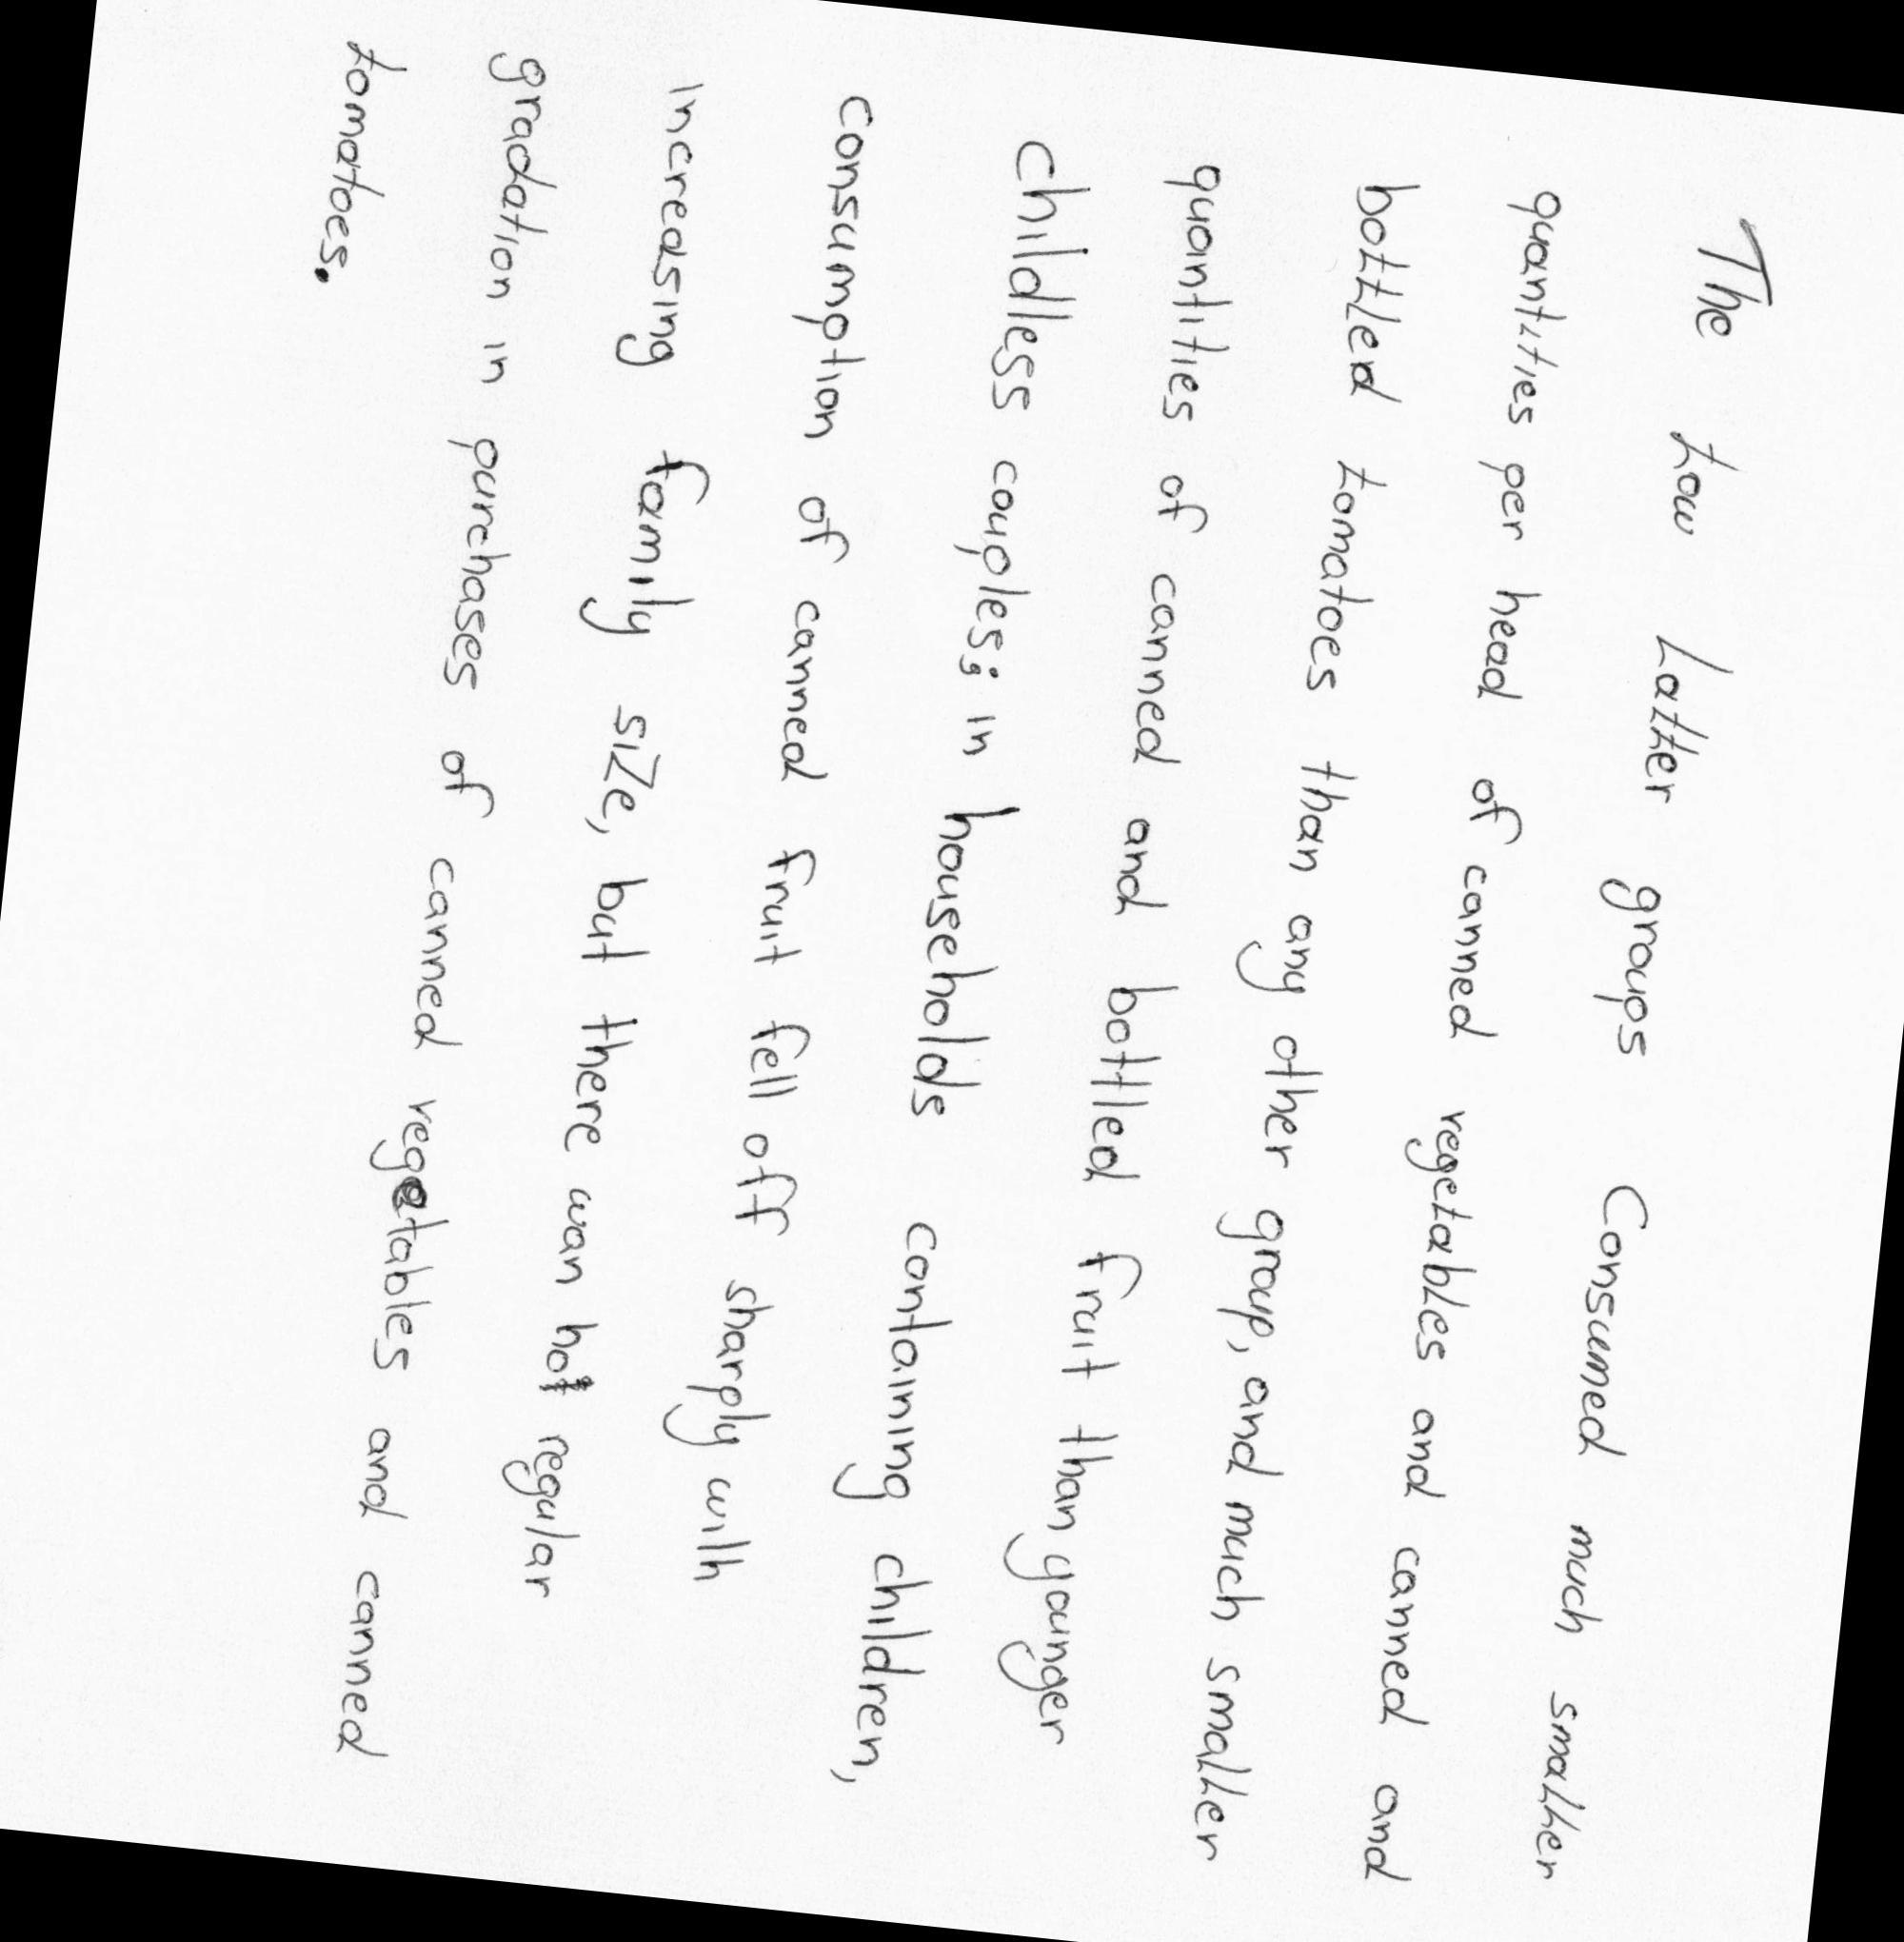 The tow Latter groups Consumed much smaller
quantities per head of canned regetables and canned and
bottled tomatoes than any other group, and much smaller
quantities of canned and bottled fruit than younger
Childless couples; in households containing children,
consumption of canned fruit fell off sharply with
increasing family size, but there wan not regular
gradation in purchases of canned regetables and canned
tomatoes.